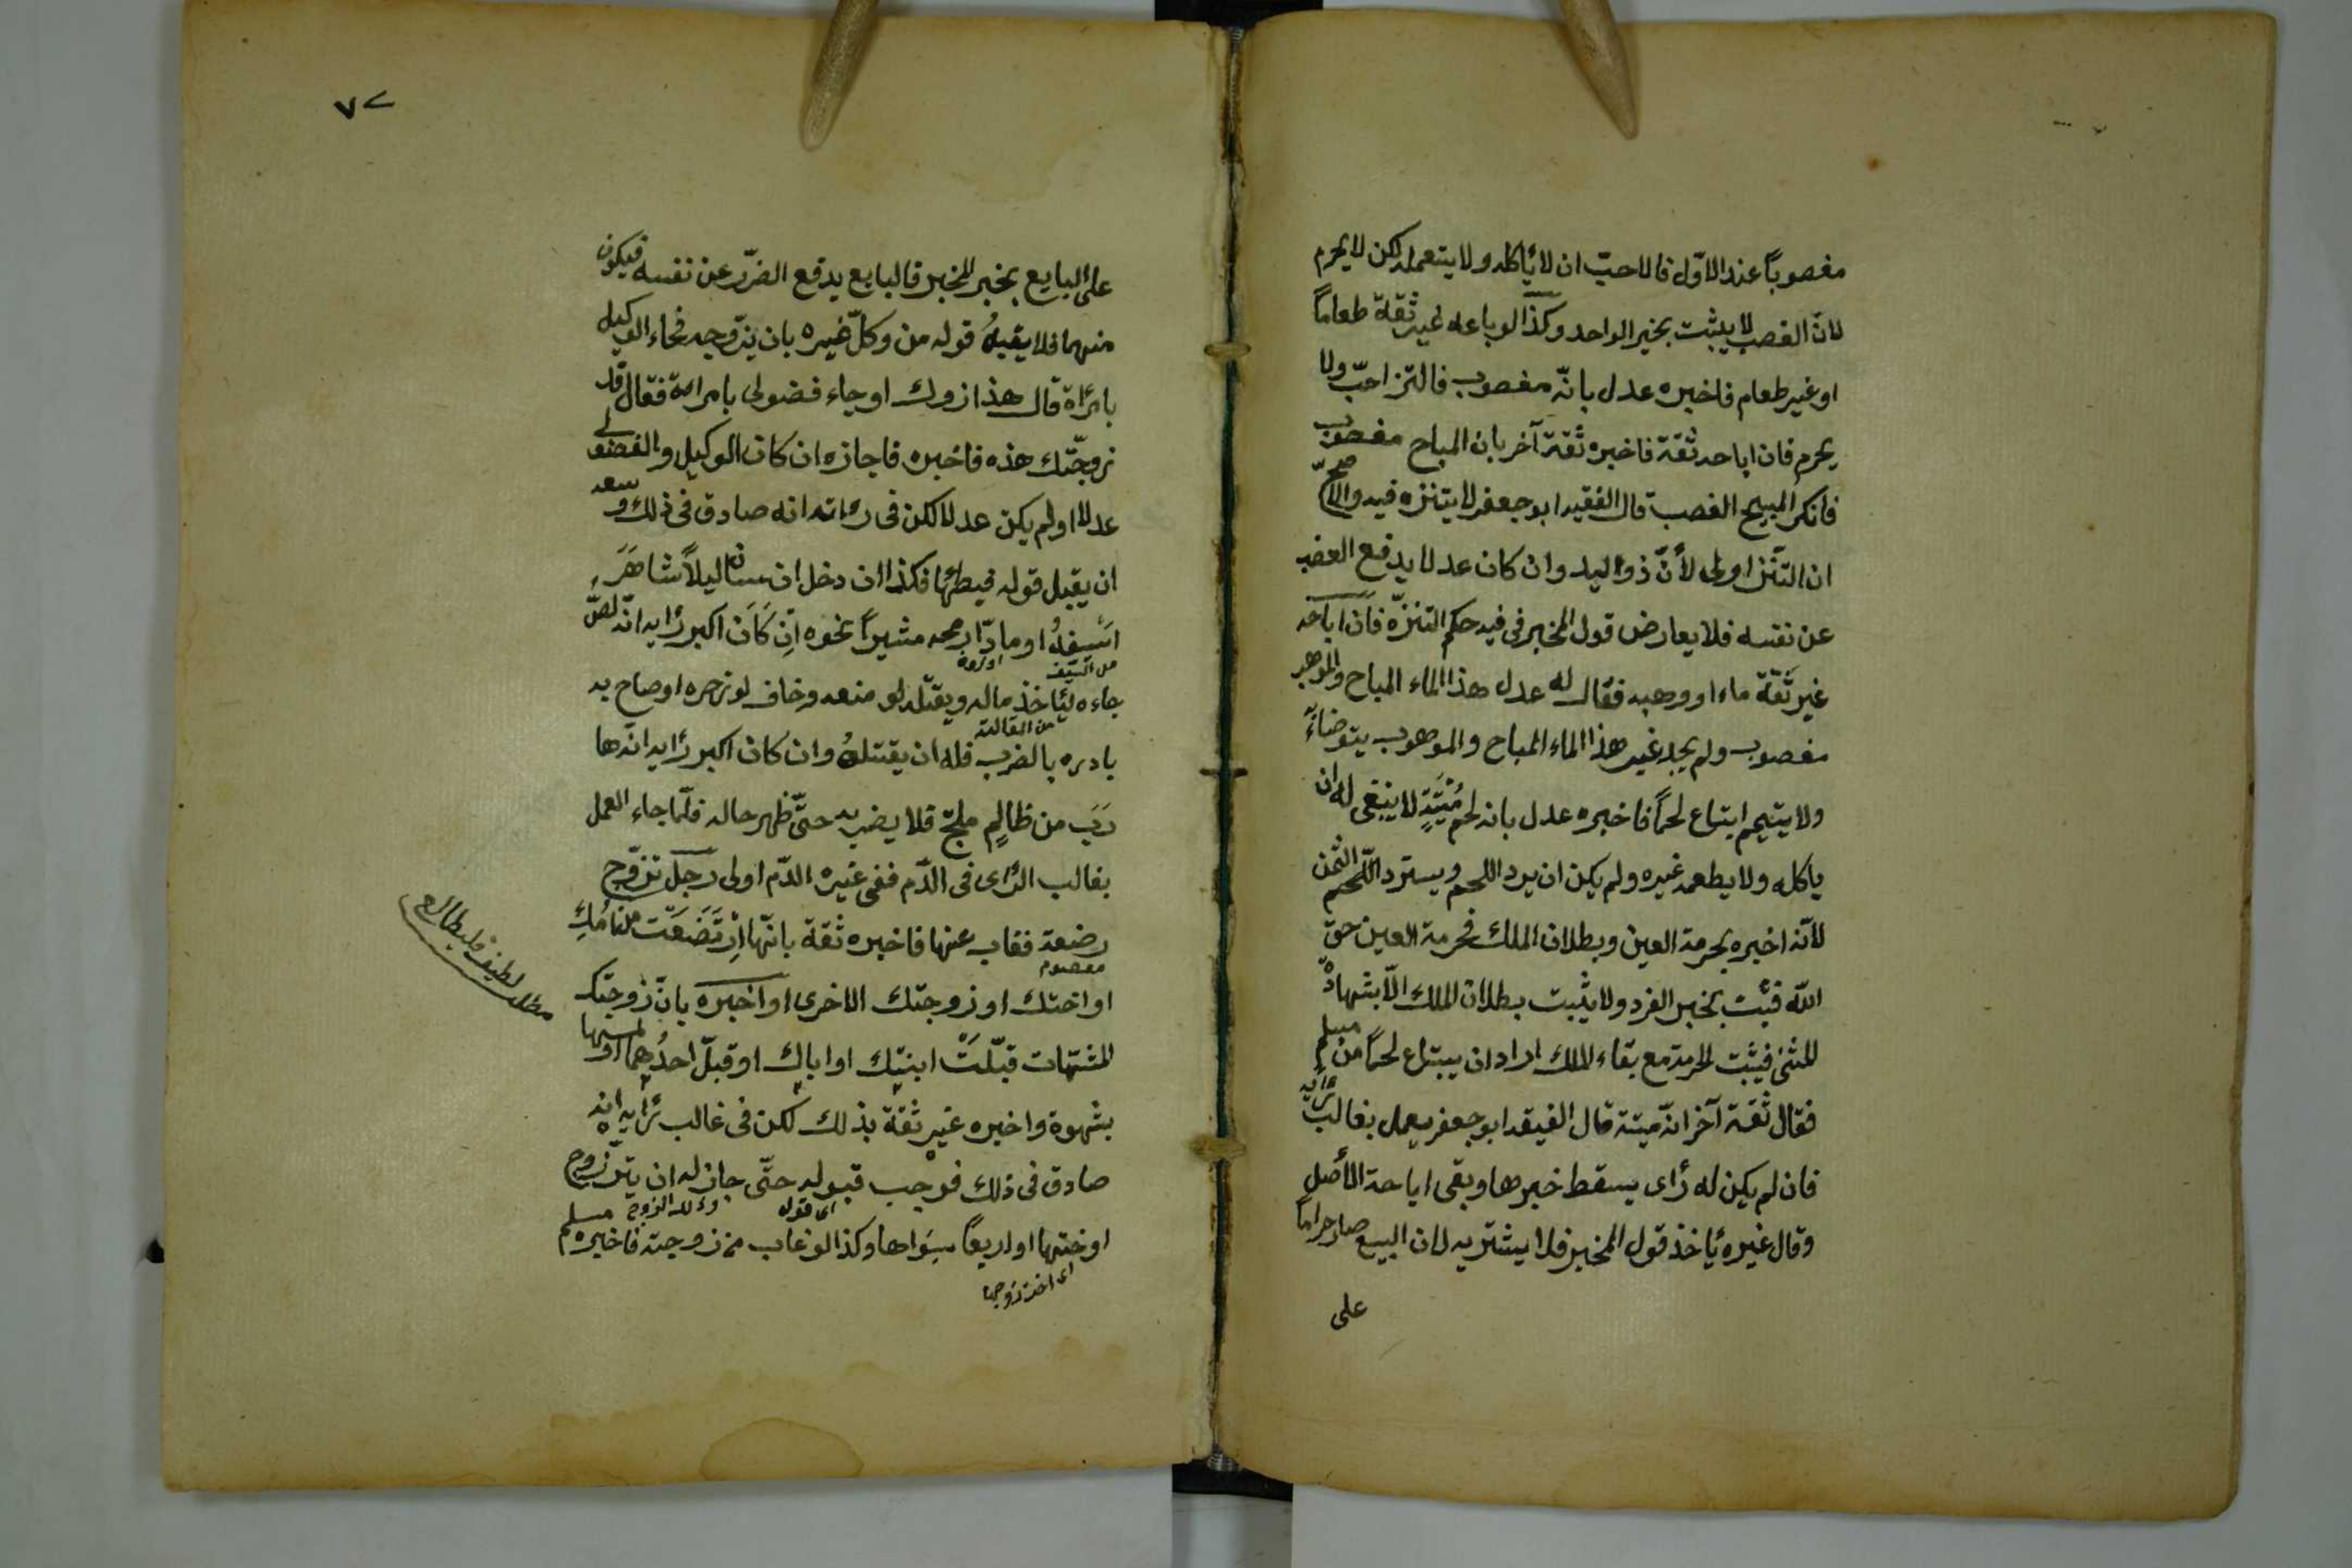 مغصوباً عند الاوّل فالاحبّ ان لا يأكله ولا يتعمله لكن لا يحرم
لانّ الغصب لا يثبت بخبر الواحد وكذا لو باعه غير ثقة طعاماً
او غير طعام فاخبره عدل بانّه مغصوب فالتنز احبّ ولا
يحرم فان اباحه ثقة فاخبره ثقة آخر بان المباح مغصوب
فانكر المبيح الغصب قال الفقيه ابو جعفر لا يتنزه فيه والاصحّ
ان التّنز اولى لأنّ ذو اليد وان كان عدلا يدفع الغصب
عن نفسه فلا يعارض قول المخبر فى فيه حكم التنزّه فان اباحه
غير ثقة ماء او وهبه فقال له عدل هذا الماء المباح والموهب
مغصوب ولم يجد غير هذا الماء المباح والموهوب يتوضأ
ولا يتيمم ابتاع لحماً فاخبره عدل بانه لحم ميتةٍ لا ينبغى له ان
ياكله ولا يطعمه غيره ولم يكن ان يرد اللحم ويسترد اللّحم الثمن
لانّه اخبره بحرمة العين وبطلان الملك فحرمة العين حقّ
اللّه فيثبت بخبر الفرد ولا يثبت بطلان الملك الّا بشهادة
المثنى فيثبت الحرمة مع بقاء الملك اراد ان يبتاع لحماً من مسلم
فقال ثقة آخر انّه ميتة قال الفيقه ابو جعفر يعمل بغالب رأيه
فان لم يكن له رأى يسقط خبرها وبقى اباحة الأصل
وقال غيره يأخذ قول المخبر فلا يشتريه لان البيع صار حراماً
على
٧٢
على البايع بخبر المخبر فالبايع يدفع الضرّر عن نفسه فيكون
منهما فلا يقبلُ قوله من وكلّ غيره بان يزّوجه فجاء الوكيل
بامرأة قال هذا زوك او جاء فضولى بامراة فقال قد
زوجّتك هذه فاخبره فاجازه ان كان الوكيل والفضولى
عدلا او لم يكن عدلا لكن فى رأته انه صادق فى ذلك وسعه
ان يقبل قوله فيطأها فكذا ان دخل انسان ليلاً شاهرَ
اسّيفهُ او مادّا رمحه مشيراً نحوه اِن كَان اكبر رأيه انّه لصّ
من السّيف
جاءه ليأخذ ماله ويقتله لو منعه وخاف لو زجره او صاح به
من القالة
بادره بالضرب فله ان يقتلهُ وان كان اكبر رأيه انه ها
ربَ من ظالمٍ ملجّ فلا يضربه حتّى ظهر حاله فلّما جاء العمل
بغالب الرّأى فى الدّم ففى غيره الدّم اولى رجل تزوّج
رضعة فغاب عنها فاخبره ثقة بانّها اِرْتَضَعَت من امُك
او اختك او زوجتك الاخرى او اخبره بانّ زوجتك
المشتهات قبّلَتْ ابنك او اباك او قبلّ احدُهما او لمسها
بشهوة واخبره غير ثقة بذلك لكن فى غالب رأيه انه
صادق فى ذلك فوجب قبوله حتّى جاز له ان يتزوج
اى قوله
او ختها او اربعاً سِواها وكذا لو غاب من زوجته فاخبره مسلم
اى اخت زوجها
مطلب لطيف فليطالع